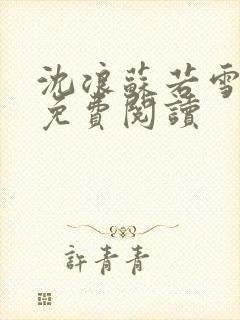 沈浪蘇若雪
免費閱讀
許青青